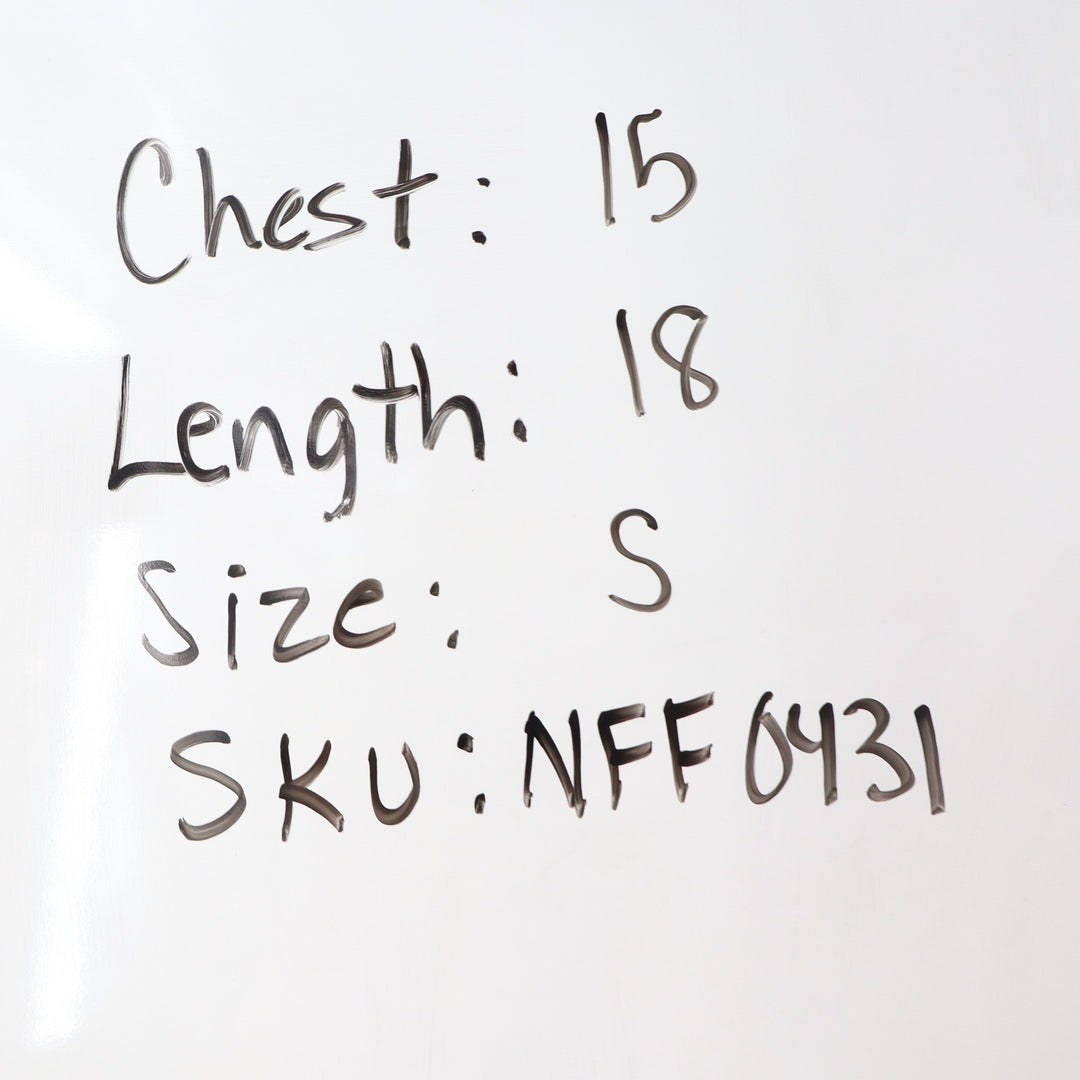 Chest: 15
Length: 18
Size: S
SKU: NFF0431